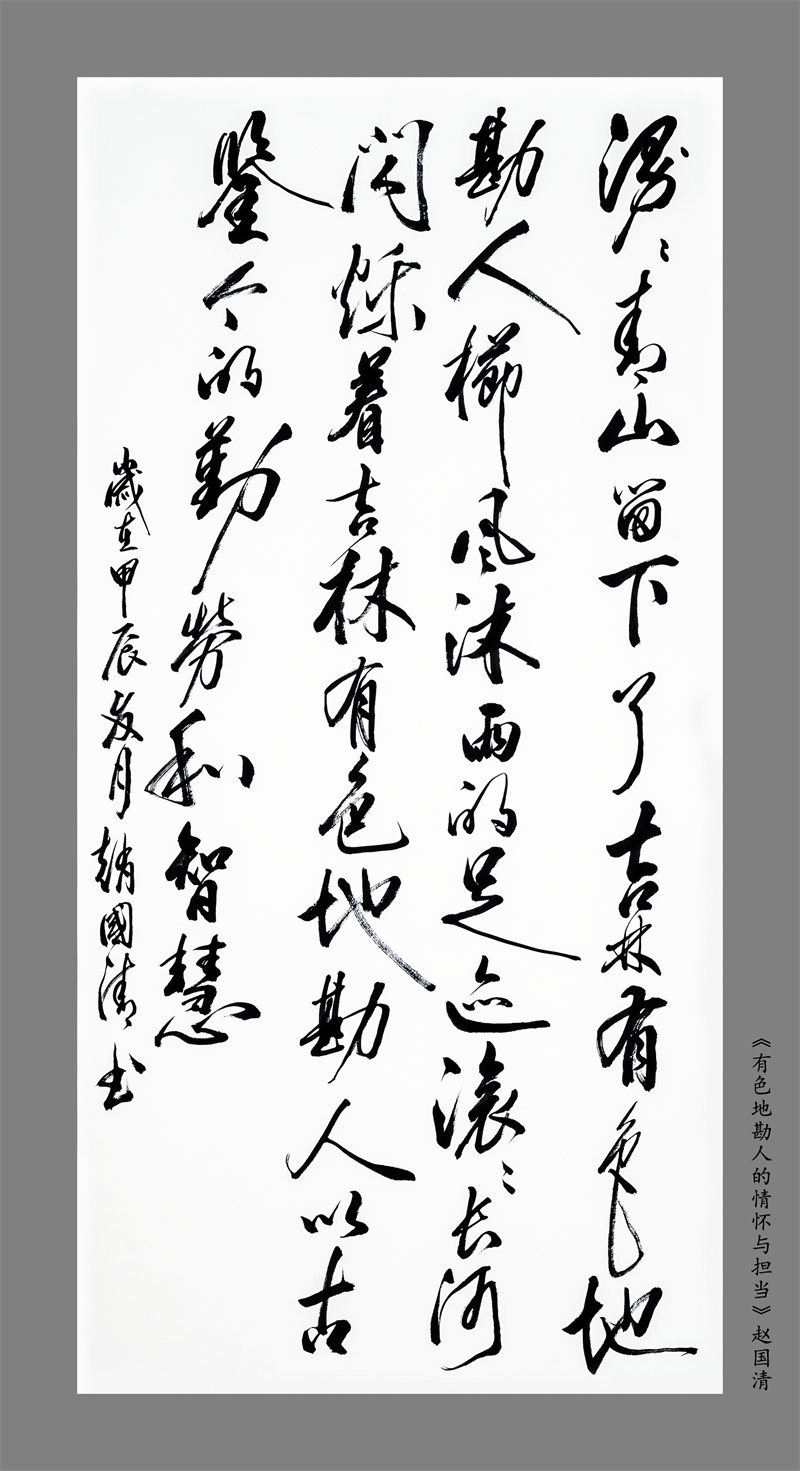 漫々青山留下了吉林有色地
勘人櫛风沐雨的足迹滚々长河
闪烁着吉林有色地勘人以古
鉴今的勤劳和智慧
歲在甲辰夏月趙國清书
《有色地勘人的情怀与担当》赵国清